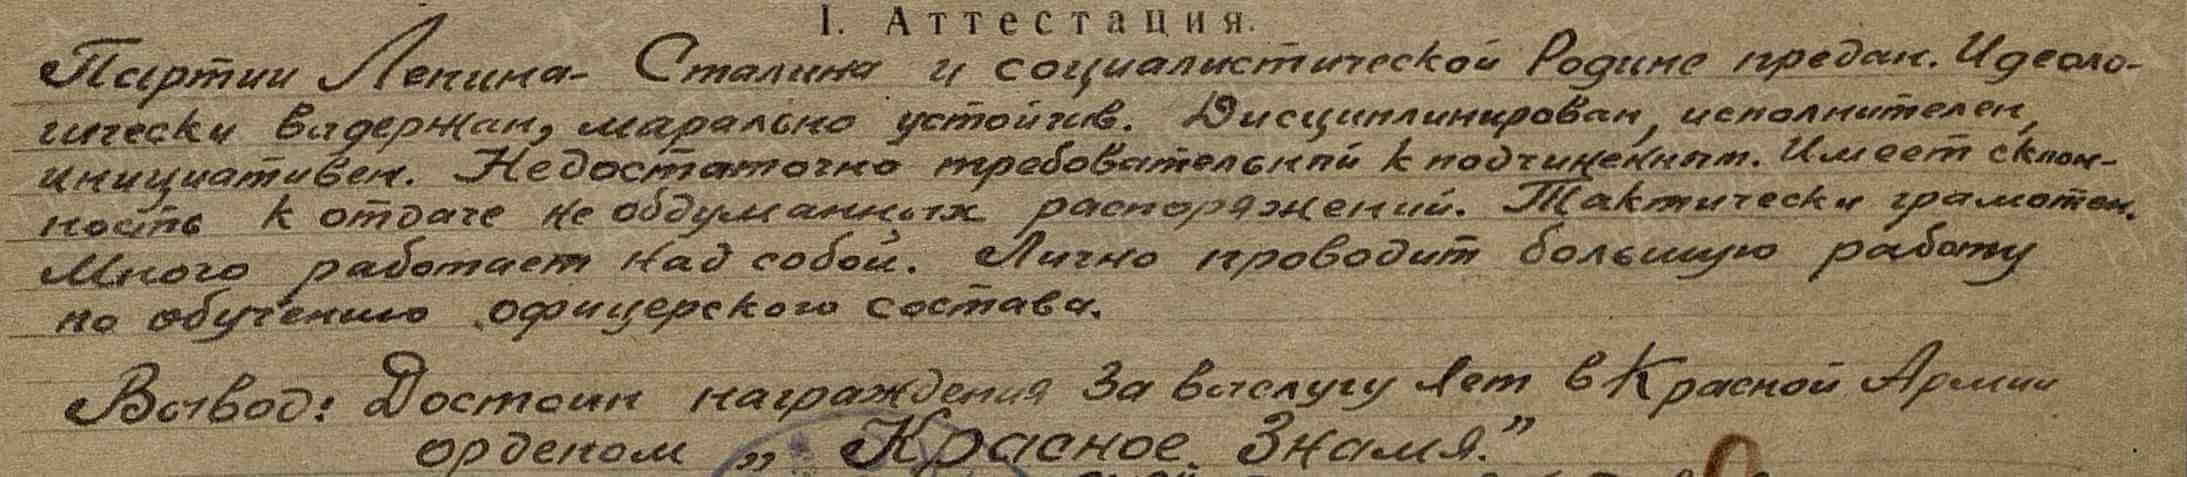 I. Аттестация.
Партии Ленина-Сталина и социалистической Родине предан. Идеоло-
гически выдержан, марально устойчив. Дисциплинирован, исполнителен,
инициативен. Недостаточно требовательный к подчиненным. Имеет склон-
ность к отдаче не обдуманных распоряжений. Тактически грамотен.
Много работает над собой. Лично проводит большую работу
по обучению офицерского состава.
Вывод: Достоин награждения за выслугу лет в Красной Армии
орденом „Красное Знамя."